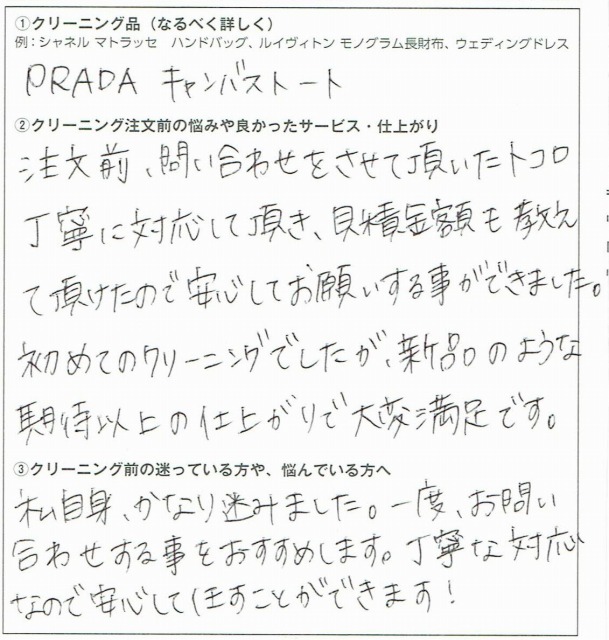 ①クリーニング品（なるべく詳しく）
例：シャネル マトラッセ　ハンドバッグ、ルイヴィトン モノグラム長財布、ウェディングドレス
PRADA キャンバストート
②クリーニング注文前の悩みや良かったサービス・仕上がり
注文前、問い合わせをさせて頂いたトコロ
丁寧に対応して頂き、見積金額も教え
て頂けたので安心してお願いする事ができました。
初めてのクリーニングでしたが、新品のような
期待以上の仕上がりで大変満足です。
③クリーニング前の迷っている方や、悩んでいる方へ
私自身、かなり迷みました。一度、お問い
合わせする事をおすすめします。丁寧な対応
なので安心して任すことができます！